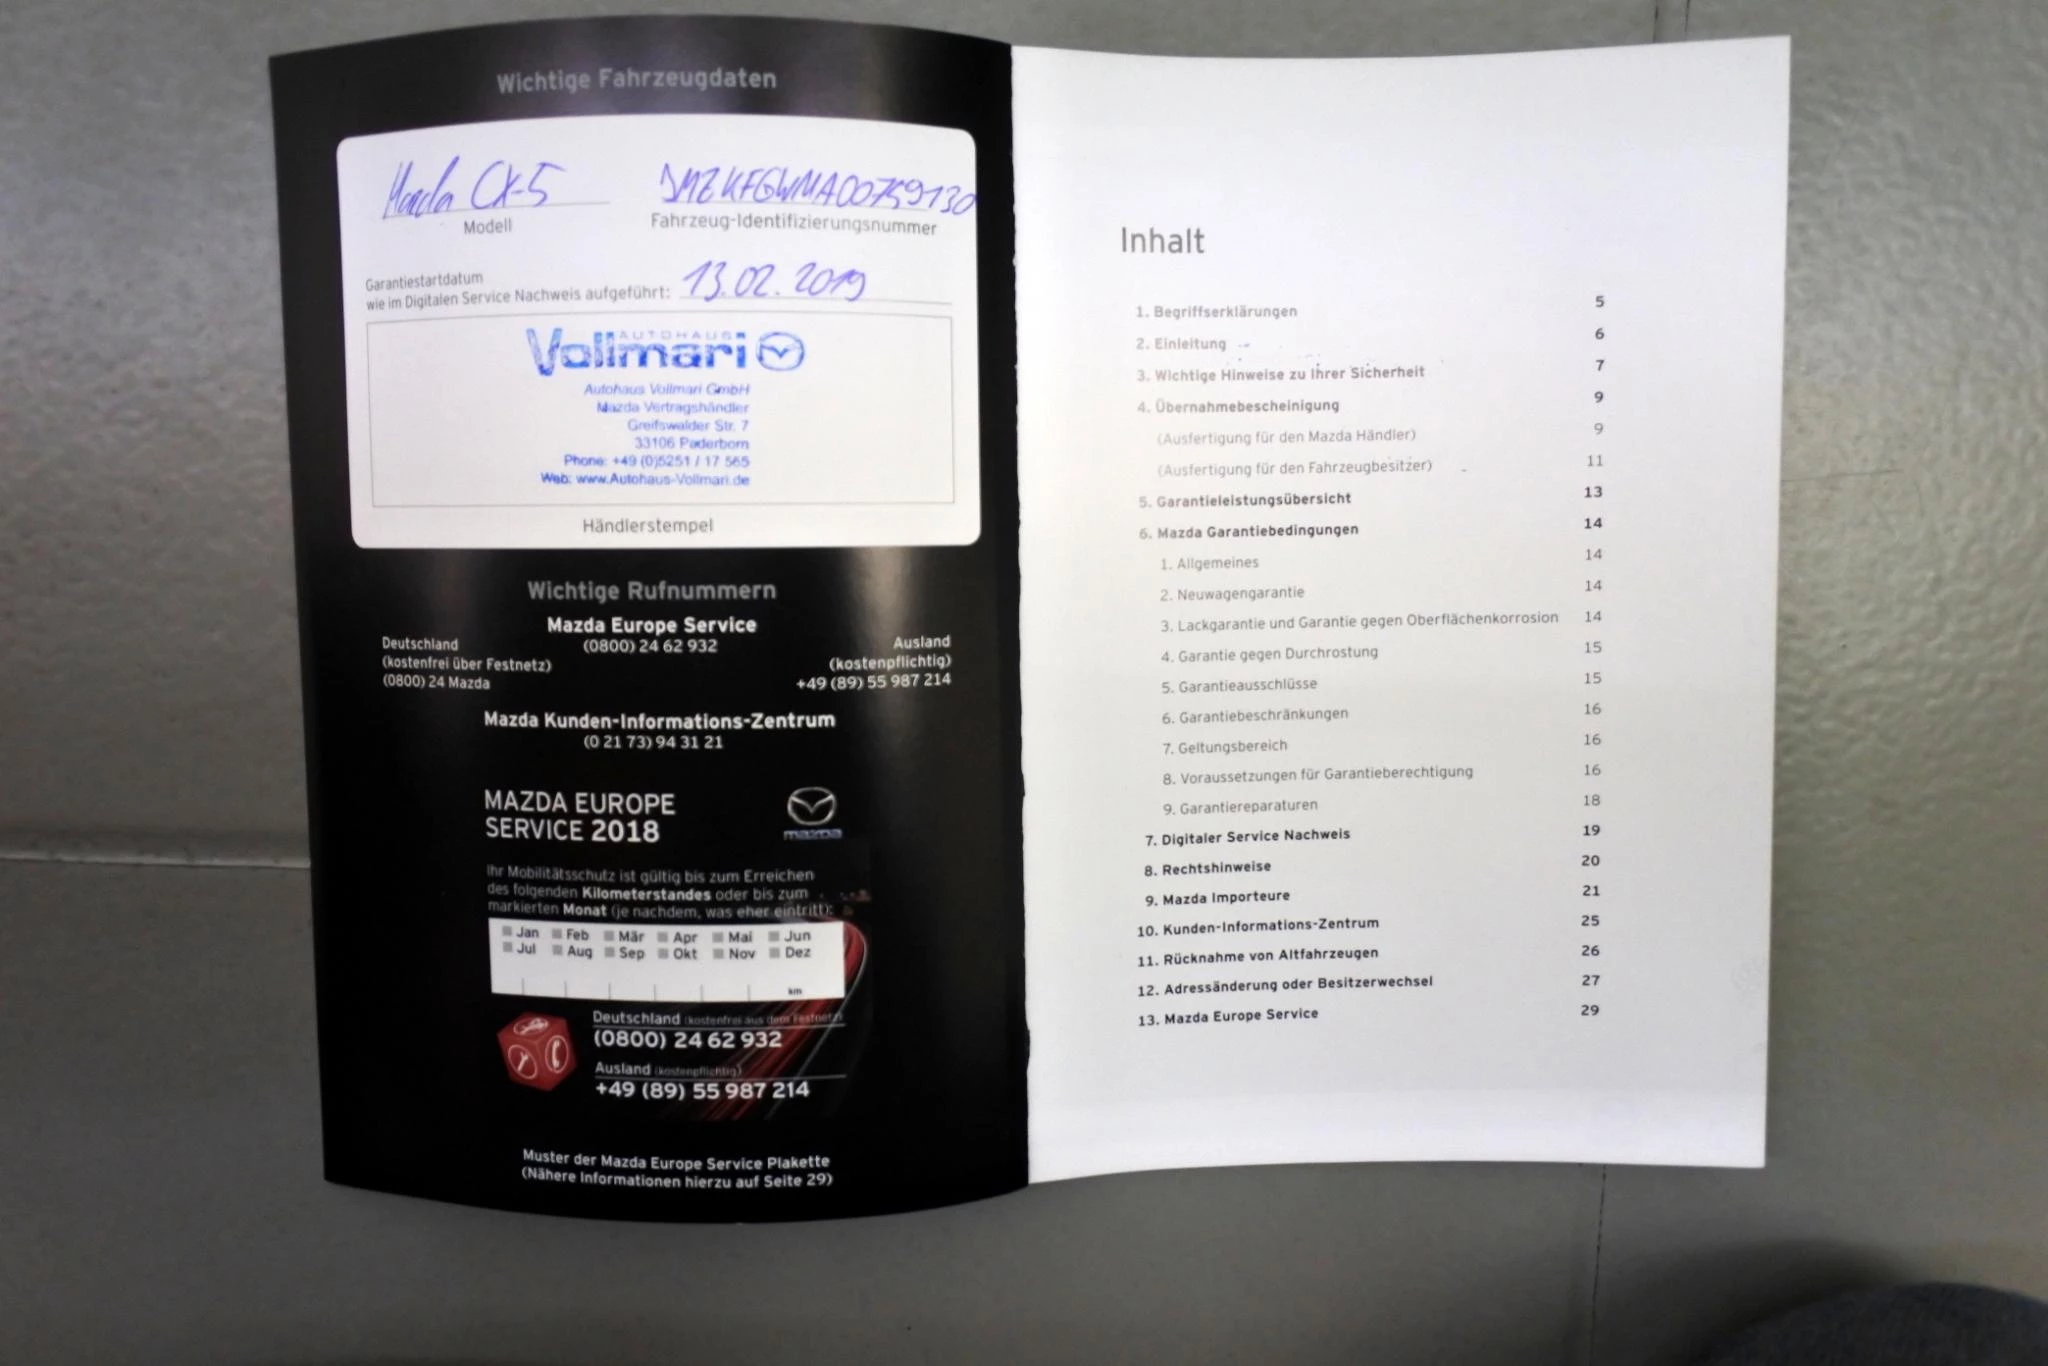 Wichtige Fahrzeugdaten
Mazda CX-5
Modell
JMZKFGWMA00759130
Fahrzeug-Identifizierungsnummer
Garantiestartdatum
wie im Digitalen Service Nachweis aufgeführt: 13.02.2019
AUTOHAUS
Vollmari
Autohaus Vollmari GmbH
Mazda Vertragshändler
Greifswalder Str. 7
33106 Paderborn
Phone: +49 (0)5251 / 17 565
Web: www.Autohaus-Vollmari.de
Händlerstempel
Wichtige Rufnummern
Mazda Europe Service
(0800) 24 62 932
Deutschland
(kostenfrei über Festnetz)
(0800) 24 Mazda
Ausland
(kostenpflichtig)
+49 (89) 55 987 214
Mazda Kunden-Informations-Zentrum
(0 21 73) 94 31 21
MAZDA EUROPE
SERVICE 2018
mazda
Ihr Mobilitätsschutz ist gültig bis zum Erreichen
des folgenden Kilometerstandes oder bis zum
markierten Monat (je nachdem, was eher eintritt):
Jan Feb Mär Apr Mai Jun
Jul Aug Sep Okt Nov Dez
km
Deutschland (kostenfrei aus dem Festnetz)
(0800) 24 62 932
Ausland (kostenpflichtig)
+49 (89) 55 987 214
Muster der Mazda Europe Service Plakette
(Nähere Informationen hierzu auf Seite 29)
Inhalt
1. Begriffserklärungen 5
2. Einleitung 6
3. Wichtige Hinweise zu Ihrer Sicherheit 7
4. Übernahmebescheinigung 9
(Ausfertigung für den Mazda Händler) 9
(Ausfertigung für den Fahrzeugbesitzer) 11
5. Garantieleistungsübersicht 13
6. Mazda Garantiebedingungen 14
1. Allgemeines 14
2. Neuwagengarantie 14
3. Lackgarantie und Garantie gegen Oberflächenkorrosion 14
4. Garantie gegen Durchrostung 15
5. Garantieausschlüsse 15
6. Garantiebeschränkungen 16
7. Geltungsbereich 16
8. Voraussetzungen für Garantieberechtigung 16
9. Garantiereparaturen 18
7. Digitaler Service Nachweis 19
8. Rechtshinweise 20
9. Mazda Importeure 21
10. Kunden-Informations-Zentrum 25
11. Rücknahme von Altfahrzeugen 26
12. Adressänderung oder Besitzerwechsel 27
13. Mazda Europe Service 29